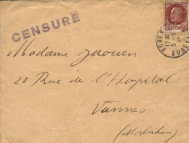 CENSURÉ
Madame
20 Rue de l'Hopital
Vannes
(Morbihan)